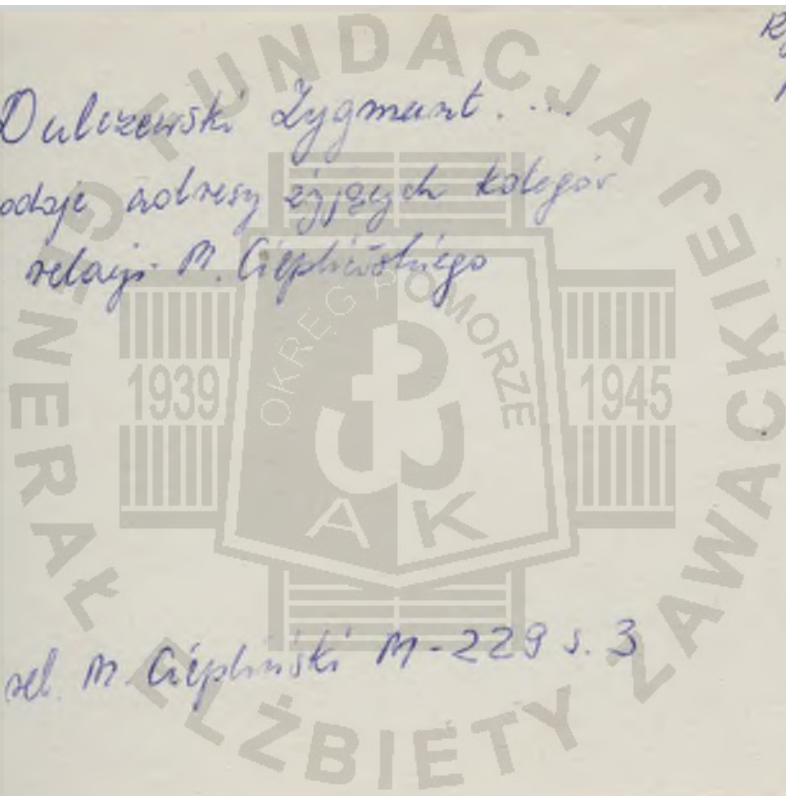 Dulczewski Zygmunt. ...
odaje adresy żyjących kolegów
relacji M. Cieplińskiego
rel. M. Ciepliński M-229 s. 3
FUNDACJA
GENERAŁ ELŻBIETY ZAWACKIEJ
OKRĘG POMORZE
1939
1945
AK